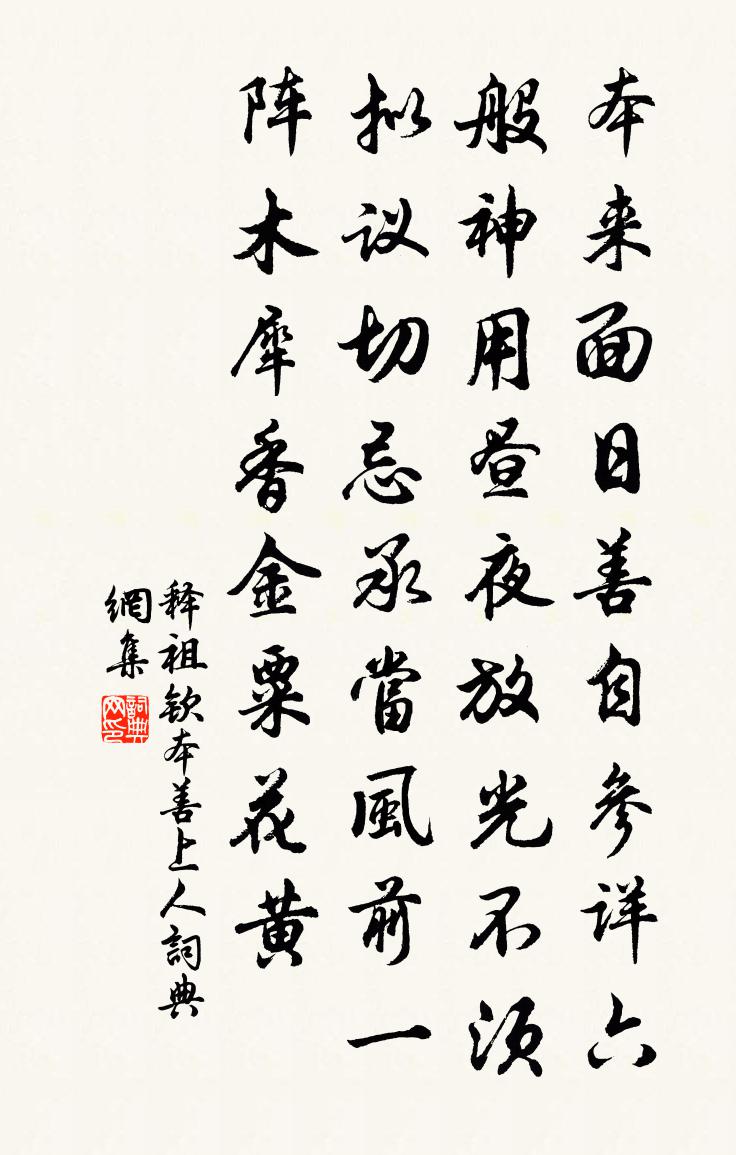 本来面日善自参详六
般神用昼夜放光不须
拟议切忌承當風前一
阵木犀香金粟花黄
释祖钦本善上人詞典
網集
詞典
网印